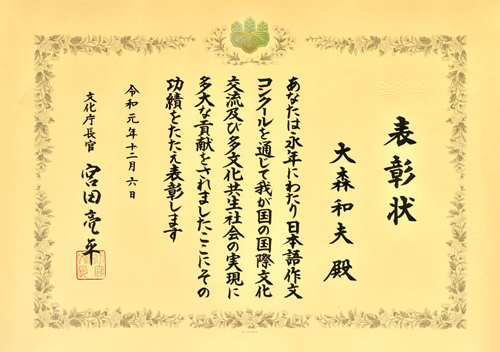 表彰状
大森和夫 殿
あなたは永年にわたり日本語作文
コンクールを通じて我が国の国際文化
交流及び多文化共生社会の実現に
多大な貢献をされましたここにその
功績をたたえ表彰します
令和元年十二月六日
文化庁長官 宮田亮平